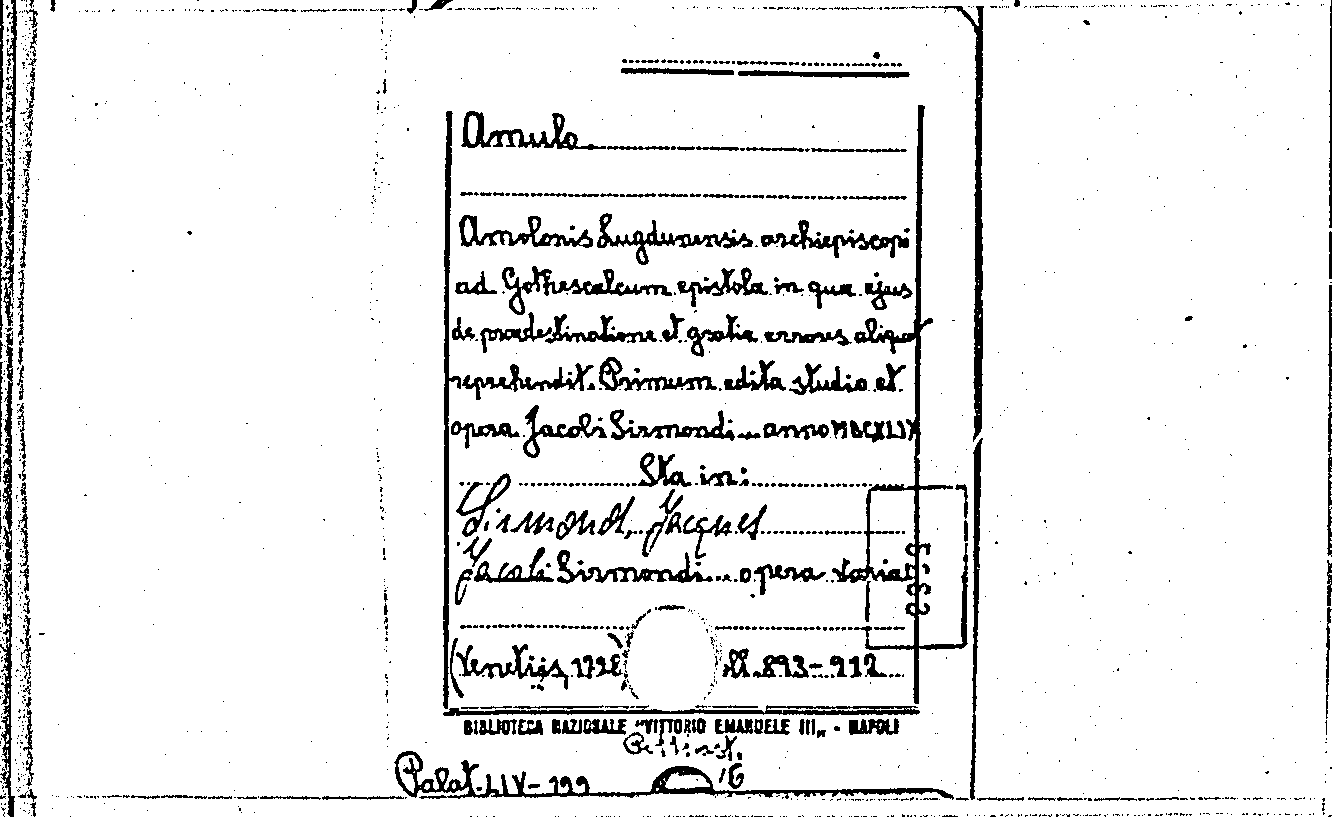 Amulo.
Amolonis Lugdunensis archiepiscopi
ad Gothescalcum epistola in qua ejus
de praedestinatione et gratia errores aliquot
reprehendit. Primum edita studio et
opera Jacobi Sirmondi... anno MDCXLIX
Sta in:
Sirmond, Jacques
Jacobi Sirmondi... opera varia
(Venetiis, 1728) coll. 893-912
BIBLIOTECA NAZIONALE "VITTORIO EMANUELE III„ - NAPOLI
Palat. LIV-199